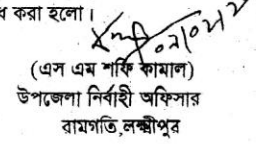 করা হলো।
(এস এম শফি কামাল)
উপজেলা নির্বাহী অফিসার
রামগতি,লক্ষ্মীপুর